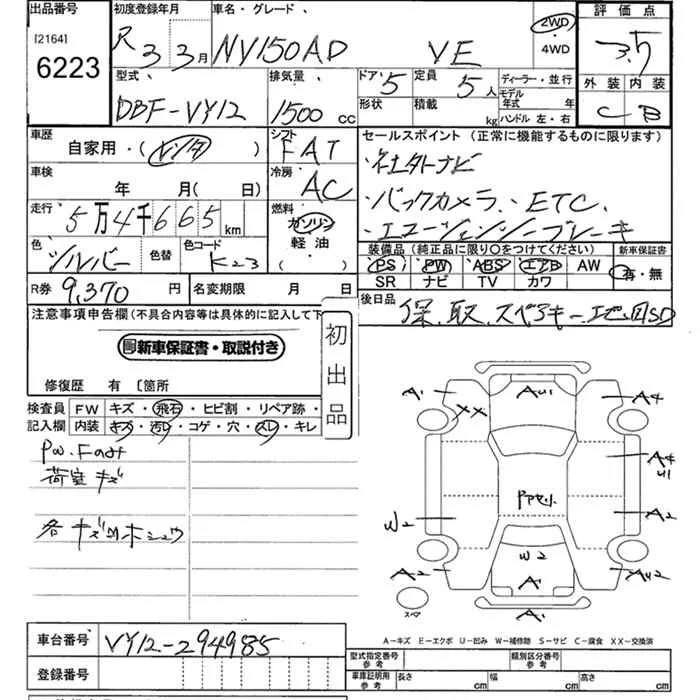 出品番号 初度登録年月 車名・グレード 評価点
[2164] 6223 R 3 3月 NV150AD VE 2WD ・ 4WD 3.5
型式 排気量 ドア 5 定員 5人 ディーラー・並行 外装 内装
DBF-VY12 1500cc 形状 積載 kg モデル年式 年 ハンドル 左・右 C B
車歴 自家用・(レンタ) シフト FAT セールスポイント(正常に機能するものに限ります)
車検 年 月(日) 冷房 AC ・社外ナビ
・バックカメラ、・ETC、
走行 5万4千665km 燃料 ガソリン 軽油 ・( ) ・エマージェンシーブレーキ
色 シルバー 色替 色コード K23 装備品(純正品に限り○をつけてください) 新車保証書
PS PW ABS エアB AW 有・無
SR ナビ TV カワ
R券 9,370円 名変期限 月 日 後日品 保、取、スペアキー
注意事項申告欄(不具合内容等は具体的に記入して下 初出品
新車保証書・取説付き
修復歴 有 〔箇所
検査員記入欄 FW キズ・飛石・ヒビ割・リペア跡・
内装 キズ・汚レ・コゲ・穴・スレ・キレ
PW.Fのみ
荷室キズ
各キズ凹ホシュウ
A1 AU1 A4
XX
A4
U1
Pマセ.
W2 A2
W2
A2 A AU2
スペア A
A-キズ E-エクボ U-凹み W-補修跡 S-サビ C-腐食 XX-交換済
車台番号 VY12-294985
型式指定番号 参考 類別区分番号 参考
登録番号
車庫証明用 参考 長さ cm 幅 cm 高さ cm